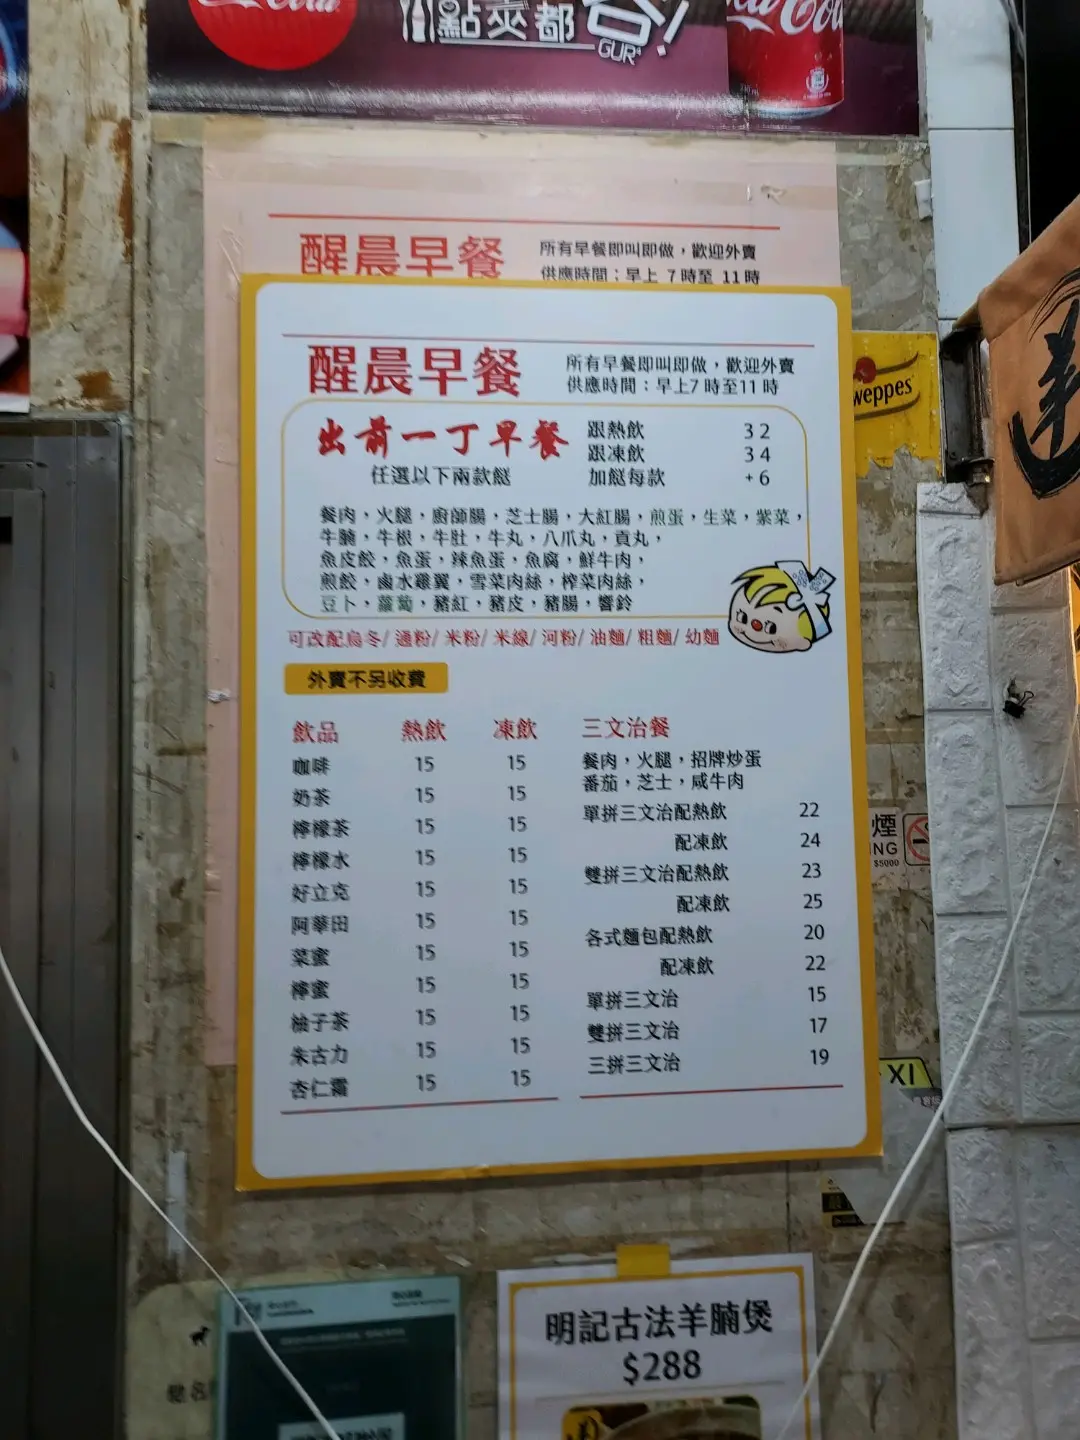 點夾都
GUR
Coca
醒晨早餐
所有早餐即叫即做，歡迎外賣
供應時間：早上 7 時至 11 時
醒晨早餐
所有早餐即叫即做，歡迎外賣
供應時間：早上7 時至11 時
出前一丁早餐
任選以下兩款餸
跟熱飲 32
跟凍飲 34
加餸每款 +6
餐肉，火腿，廚師腸，芝士腸，大紅腸，煎蛋，生菜，紫菜，
牛腩，牛根，牛肚，牛丸，八爪丸，貢丸，
魚皮餃，魚蛋，辣魚蛋，魚腐，鮮牛肉，
煎餃，鹵水雞翼，雪菜肉絲，榨菜肉絲，
豆卜，蘿蔔，豬紅，豬皮，豬腸，響鈴
可改配烏冬/ 通粉/ 米粉/ 米線/ 河粉/ 油麵/ 粗麵/ 幼麵
外賣不另收費
飲品 熱飲 凍飲
咖啡 15 15
奶茶 15 15
檸檬茶 15 15
檸檬水 15 15
好立克 15 15
阿華田 15 15
菜蜜 15 15
檸蜜 15 15
柚子茶 15 15
朱古力 15 15
杏仁霜 15 15
三文治餐
餐肉，火腿，招牌炒蛋
番茄，芝士，咸牛肉
單拼三文治配熱飲 22
配凍飲 24
雙拼三文治配熱飲 23
配凍飲 25
各式麵包配熱飲 20
配凍飲 22
單拼三文治 15
雙拼三文治 17
三拼三文治 19
weppes
煙
ING
$5000
XI
明記古法羊腩煲
$288